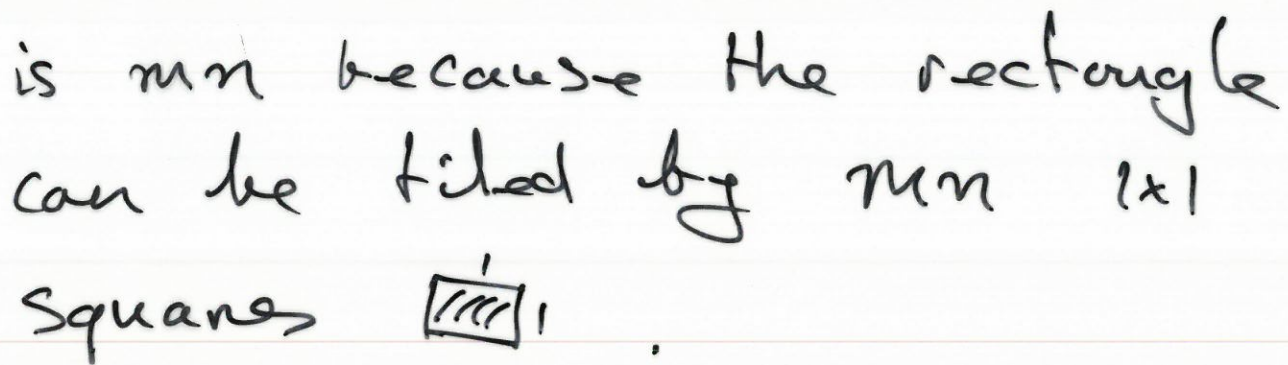 is mn because the rectangle
can be tiled by mn 1x1
squares 1 1 .